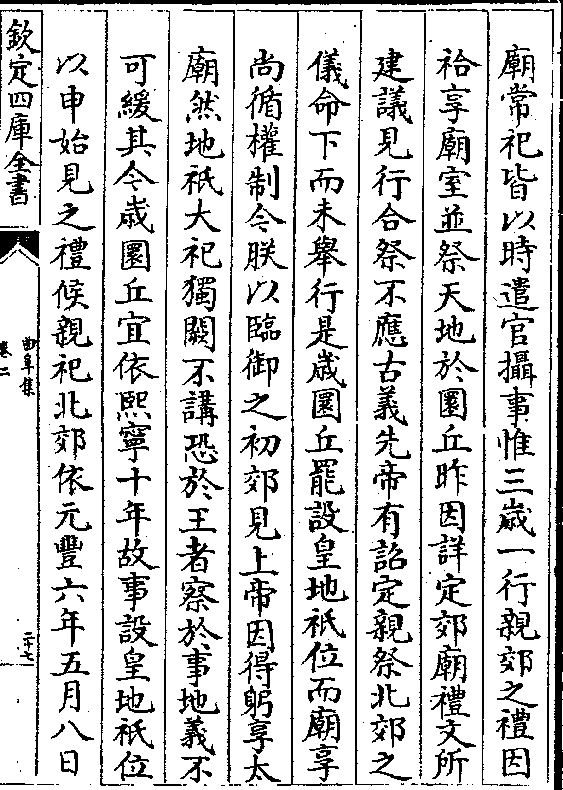 廟常祀皆以時遣官攝事惟三歲一行親郊之禮因
祫享廟室並祭天地於圜丘昨因詳定郊廟禮文所
建議見行合祭不應古義先帝有詔定親祭北郊之
儀命下而未舉行是歲圜丘罷設皇地祇位而廟享
尚循權制今朕以臨御之初郊見上帝因得躬享太
廟然地祇大祀獨闕不講恐於王者察於事地義不
可緩其今歲圜丘宜依熙寧十年故事設皇地祇位
以申始見之禮候親祀北郊依元豐六年五月八日
欽定四庫全書
曲阜集
卷二
二十七